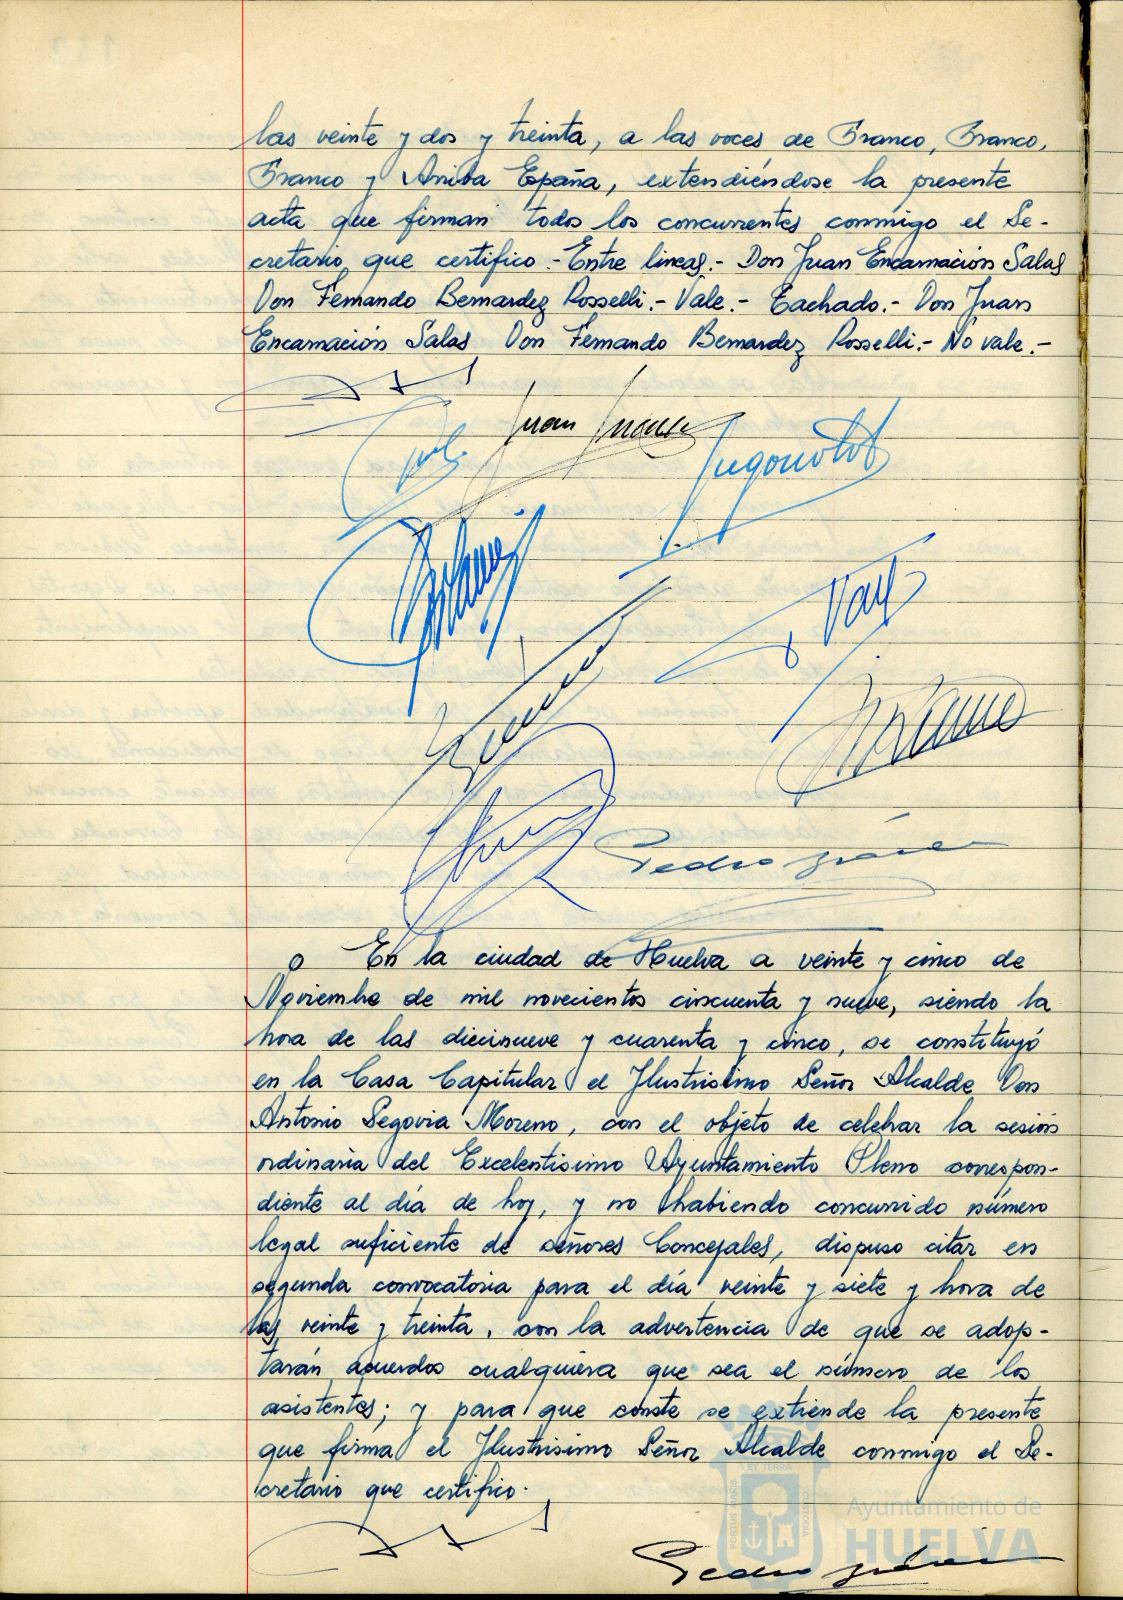 las veinte y dos y treinta, a las voces de Franco, Franco,
Franco y Arriba España, extendiéndose la presente
acta que firman todos los concurrentes conmigo el Se-
cretario que certifico.- Entre lineas.- Don Juan Encarnación Salas
Don Fernando Bernardez Rosselli.- Vale.- Tachado.- Don Juan
Encarnación Salas Don Fernando Bernardez Rosselli.- No vale.-
Juan
Pedro
En la ciudad de Huelva a veinte y cinco de
Noviembre de mil novecientos cincuenta y nueve, siendo la
hora de las diecinueve y cuarenta y cinco, se constituyó
en la Casa Capitular el Ilustrisimo Señor Alcalde Don
Antonio Segovia Moreno, con el objeto de celebrar la sesión
ordinaria del Excelentisimo Ayuntamiento Pleno correspon-
diente al día de hoy, y no habiendo concurrido número
legal suficiente de señores Concejales, dispuso citar en
segunda convocatoria para el día veinte y siete y hora de
las veinte y treinta, con la advertencia de que se adop-
tarán acuerdos cualquiera que sea el número de los
asistentes; y para que conste se extiende la presente
que firma el Ilustrisimo Señor Alcalde conmigo el Se-
cretario que certifico.
Ayuntamiento de
HUELVA
Pedro